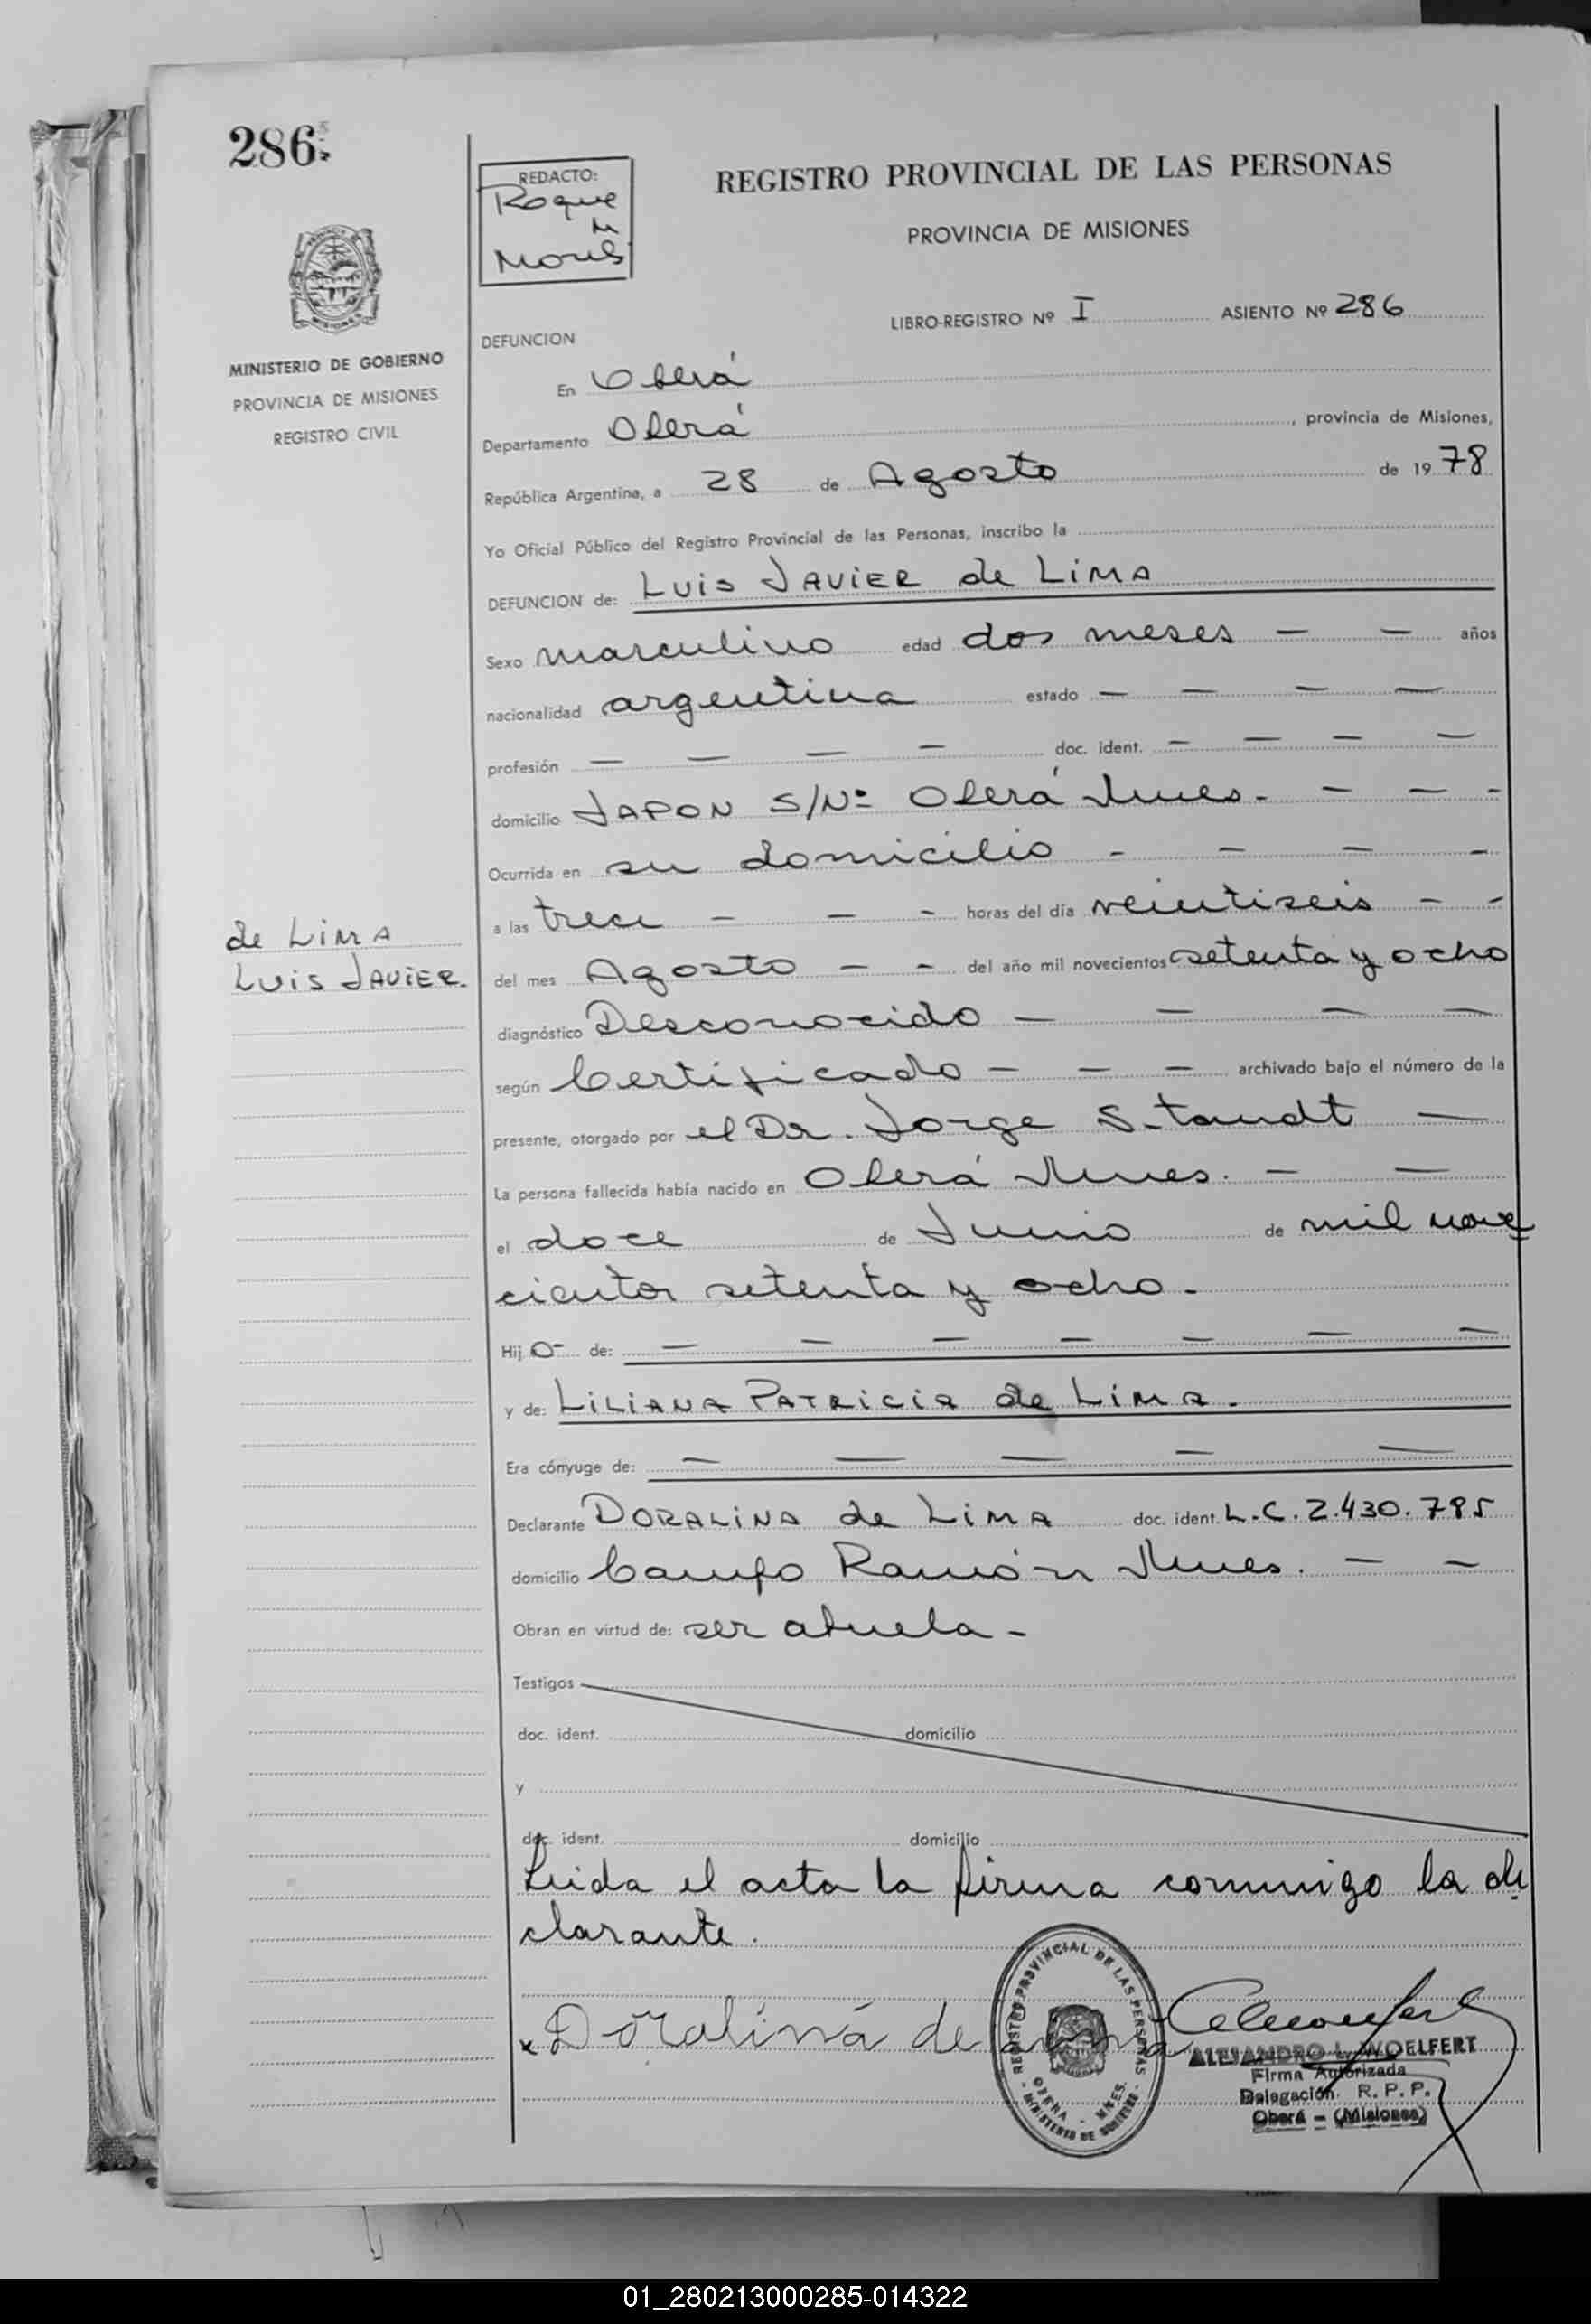 286
REDACTO:
Roque
M
REGISTRO PROVINCIAL DE LAS PERSONAS
PROVINCIA DE MISIONES
LIBRO-REGISTRO Nº I ASIENTO Nº 286
MINISTERIO DE GOBIERNO
PROVINCIA DE MISIONES
REGISTRO CIVIL
DEFUNCION
En Oberá
Departamento Oberá, provincia de Misiones,
República Argentina, a 28 de Agosto de 1978
Yo Oficial Público del Registro Provincial de las Personas, inscribo la
DEFUNCION de: LUIS JAVIER de LIMA
Sexo masculino edad dos meses — — años
nacionalidad argentina estado — — — —
profesión — — — — doc. ident. — — — —
domicilio JAPON S/Nº Oberá Mnes. — — -
Ocurrida en su domicilio - — — -
a las trece — — - horas del día veintiseis — -
de LIMA
LUIS JAVIER.
del mes Agosto — - del año mil novecientos setenta y ocho
diagnóstico Desconocido — — — —
según Certificado — — — archivado bajo el número de la
presente, otorgado por el Dr. Jorge Staudt —
La persona fallecida había nacido en Oberá Mnes. — —
el doce de Junio de mil nove
cientos setenta y ocho.
Hijo- de: — — — — — — —
y de: LILIANA PATRICIA de LIMA.
Era cónyuge de: — — — — —
Declarante DORALINA de LIMA doc. ident. L.C. 2.430.785
domicilio Campo Ramón Mnes. — —
Obran en virtud de: ser abuela -
Testigos
doc. ident. domicilio
y
doc. ident. domicilio
Leida el acta la firma conmigo la de
clarante.
x Doralina de Lima
REGISTRO PROVINCIAL DE LAS PERSONAS
OBERA - MNES.
- MINISTERIO DE GOBIERNO -
ALEJANDRO L. WOELFERT
Firma Autorizada
Delegación R. P. P.
Oberá - (Misiones)
01_280213000285-014322